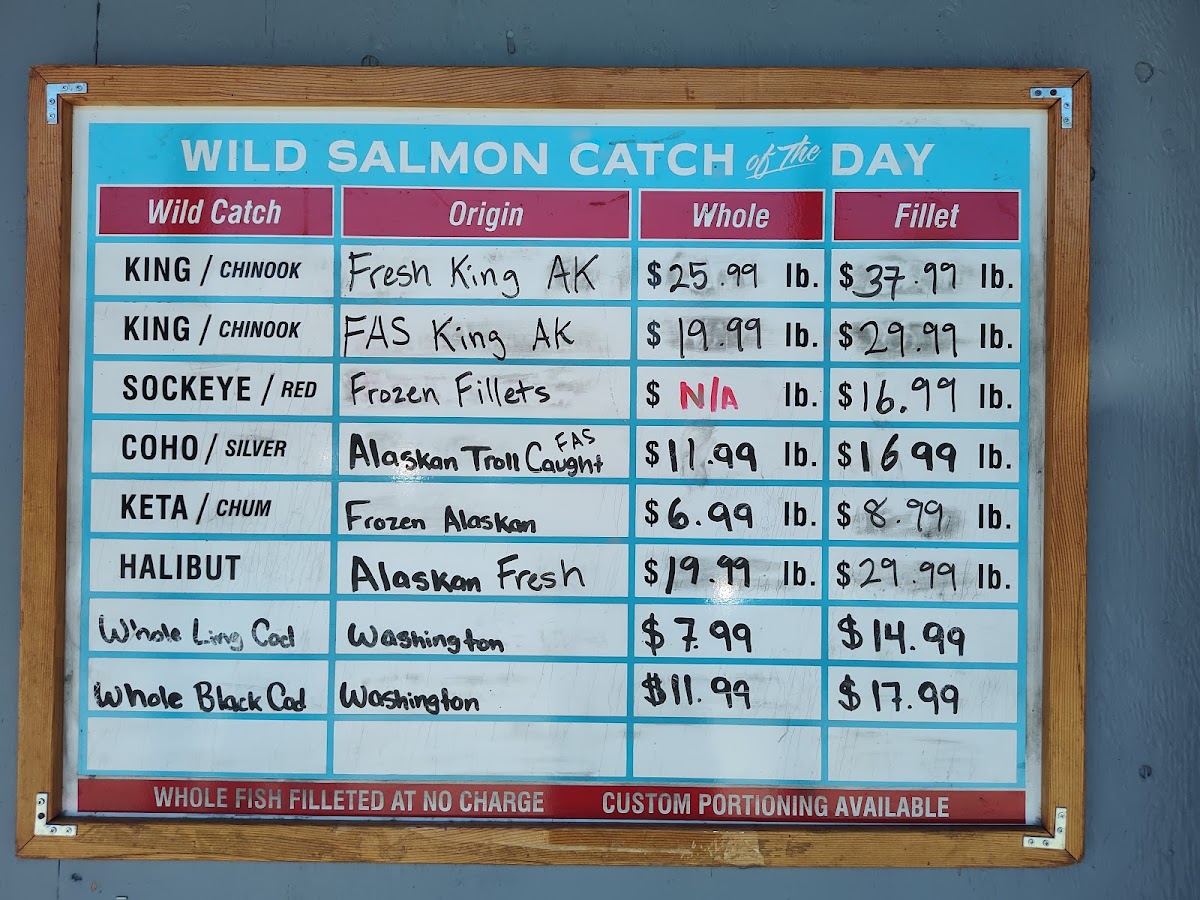 WILD SALMON CATCH of the DAY
Wild Catch Origin Whole Fillet
KING / CHINOOK Fresh King AK $25.99 lb. $37.99 lb.
KING / CHINOOK FAS King AK $19.99 lb. $29.99 lb.
SOCKEYE / RED Frozen Fillets $ N/A lb. $16.99 lb.
COHO / SILVER Alaskan Troll Caught FAS $11.99 lb. $16 99 lb.
KETA / CHUM Frozen Alaskan $6.99 lb. $8.99 lb.
HALIBUT Alaskan Fresh $19.99 lb. $29.99 lb.
Whole Ling Cod Washington $7.99 $14.99
Whole Black Cod Washington $11.99 $17.99
WHOLE FISH FILLETED AT NO CHARGE CUSTOM PORTIONING AVAILABLE